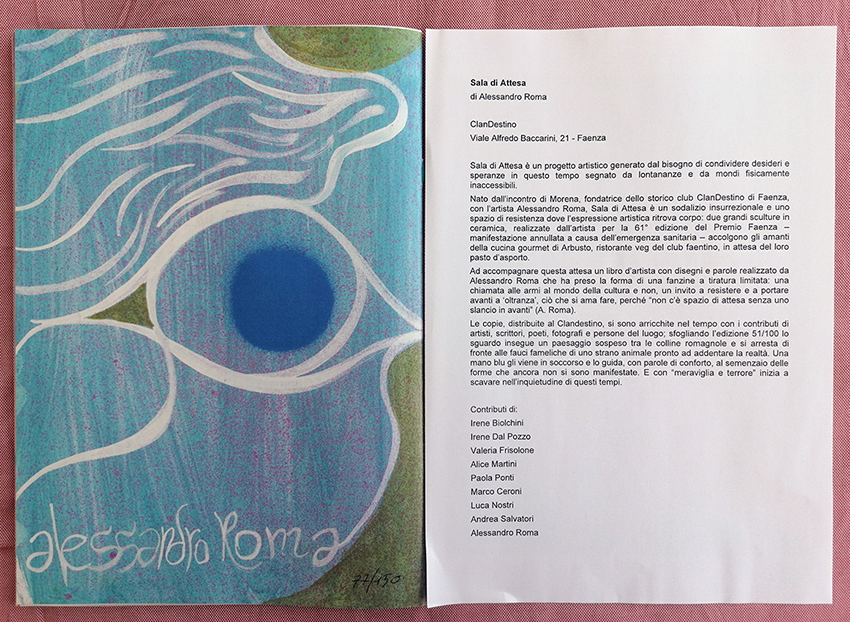 alessandro Roma
77/150
Sala di Attesa
di Alessandro Roma
ClanDestino
Viale Alfredo Baccarini, 21 - Faenza
Sala di Attesa è un progetto artistico generato dal bisogno di condividere desideri e
speranze in questo tempo segnato da lontananze e da mondi fisicamente
inaccessibili.
Nato dall'incontro di Morena, fondatrice dello storico club ClanDestino di Faenza,
con l'artista Alessandro Roma, Sala di Attesa è un sodalizio insurrezionale e uno
spazio di resistenza dove l'espressione artistica ritrova corpo: due grandi sculture in
ceramica, realizzate dall'artista per la 61° edizione del Premio Faenza –
manifestazione annullata a causa dell'emergenza sanitaria – accolgono gli amanti
della cucina gourmet di Arbusto, ristorante veg del club faentino, in attesa del loro
pasto d'asporto.
Ad accompagnare questa attesa un libro d'artista con disegni e parole realizzato da
Alessandro Roma che ha preso la forma di una fanzine a tiratura limitata: una
chiamata alle armi al mondo della cultura e non, un invito a resistere e a portare
avanti a 'oltranza', ciò che si ama fare, perché "non c'è spazio di attesa senza uno
slancio in avanti" (A. Roma).
Le copie, distribuite al Clandestino, si sono arricchite nel tempo con i contributi di
artisti, scrittori, poeti, fotografi e persone del luogo; sfogliando l'edizione 51/100 lo
sguardo insegue un paesaggio sospeso tra le colline romagnole e si arresta di
fronte alle fauci fameliche di uno strano animale pronto ad addentare la realtà. Una
mano blu gli viene in soccorso e lo guida, con parole di conforto, al semenzaio delle
forme che ancora non si sono manifestate. E con "meraviglia e terrore" inizia a
scavare nell'inquietudine di questi tempi.
Contributi di:
Irene Biolchini
Irene Dal Pozzo
Valeria Frisolone
Alice Martini
Paola Ponti
Marco Ceroni
Luca Nostri
Andrea Salvatori
Alessandro Roma